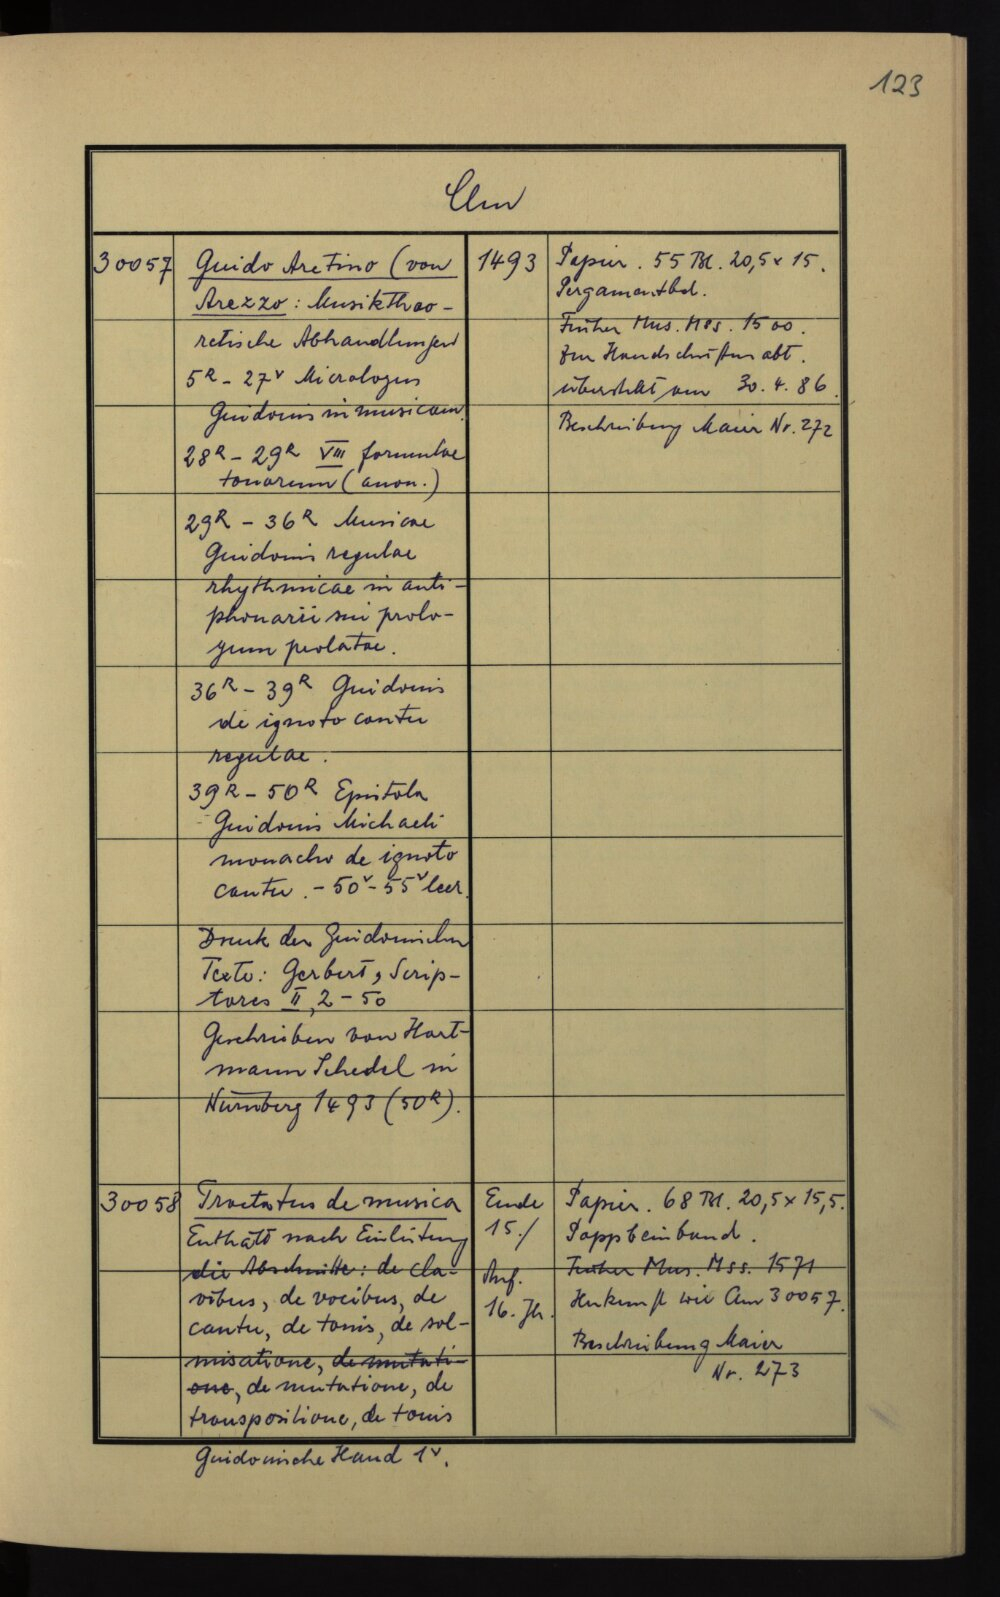 123
Clm
30057
Guido Aretino (von
Arezzo: Musiktheo-
retische Abhandlungen
5R - 27v Micrologus
Guidonis in musicam.
28R - 29R VIII formulae
tonorum (anon.)
29R - 36R Musicae
Guidonis regulae
rhythmicae in anti-
phonarii sui prolo-
gum prolatae.
36R - 39R Guidonis
de ignoto cantu
regulae.
39R - 50R Epistola
Guidonis Michaeli
monacho de ignoto
cantu. - 50v - 55v leer.
Druck der Guidonischen
Texte: Gerbert, Scrip-
tores II, 2-50
Geschrieben von Hart-
mann Schedel in
Nürnberg 1493 (50R).
1493
Papier. 55 Bl. 20,5 x 15.
Pergamentbd.
Früher Mus. Mss. 1500.
Zur Handschriftenabt.
überstellt am 30.4.86.
Beschreibung Maier Nr. 272
30058
Tractatus de musica
Enthält nach Einleitung
die Abschnitte: de cla-
vibus, de vocibus, de
cantu, de tonis, de sol-
misatione, de mutati-
one, de mutatione, de
transpositione, de tonis
Guidonische Hand 1v.
Ende
15./
Anf.
16. Jh.
Papier. 68 Bl. 20,5 x 15,5.
Pappbeinband.
Früher Mus. Mss. 1571
Herkunft wie Clm 30057.
Beschreibung Maier
Nr. 273